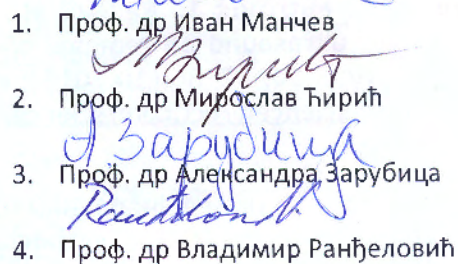 1. Проф. др Иван Манчев
2. Проф. др Мирослав Ћирић
А Зарубица
3. Проф. др Александра Зарубица
4. Проф. др Владимир Ранђеловић